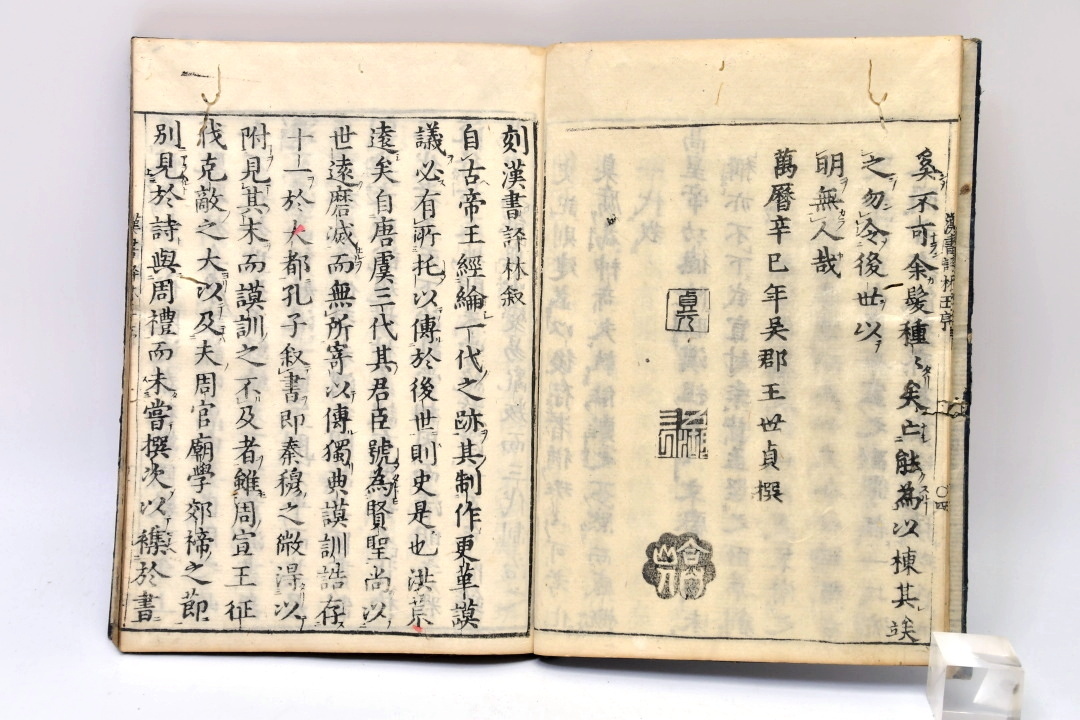 奚不可余髮種〻矣亡能為以棟其誒
之勿令後世以
明無人哉
萬曆辛巳年吳郡王世貞撰
刻漢書評林叙
自古帝王經綸一代之跡其制作更革謨
議必有所托以傳於後世則史是也洪荒
遠矣自唐虞三代其君臣號為賢聖尚以
世遠磨滅而無所寄以傳獨典謨訓誥存
十一於大都孔子叙書即秦穆之微得以
附見其末而謨訓之不及者雖周宣王征
伐克敵之大以及夫周官廟學郊禘之節
別見於詩與周禮而未嘗撰次以襍於書